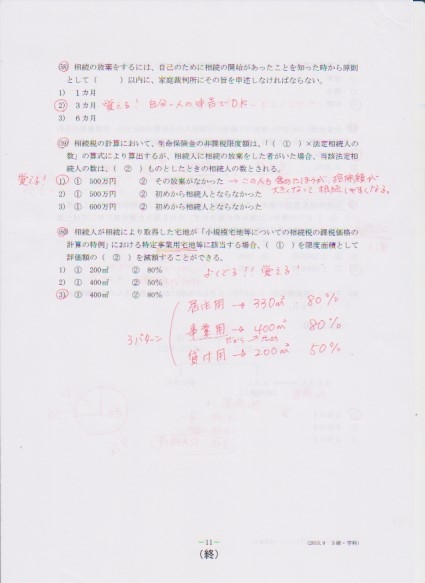 (58) 相続の放棄をするには、自己のために相続の開始があったことを知った時から原則
として（　）以内に、家庭裁判所にその旨を申述しなければならない。
1) 1カ月
2) 3カ月 覚える! 自分一人の申告でOK.
3) 6カ月
(59) 相続税の計算において、生命保険金の非課税限度額は、「（ ① ）×法定相続人の
数」の算式により算出するが、相続人に相続の放棄をした者がいる場合、当該法定相
続人の数は、（ ② ）ものとしたときの相続人の数とされる。
覚える! 1) ① 500万円 ② その放棄がなかった → この人も含めたほうが、控除額が
大きくなって相続しやすくなる。
2) ① 500万円 ② 初めから相続人とならなかった
3) ① 600万円 ② 初めから相続人とならなかった
(60) 相続人が相続により取得した宅地が「小規模宅地等についての相続税の課税価格の
計算の特例」における特定事業用宅地等に該当する場合、（ ① ）を限度面積として
評価額の（ ② ）を減額することができる。
1) ① 200㎡ ② 80%
よくでる!! 覚える!
2) ① 400㎡ ② 50%
3) ① 400㎡ ② 80%
居住用 → 330㎡ 80%
3パターン 事業用 → 400㎡ 80%
貸付用 → 200㎡ 50%
－11－
(終)
(2015.9 3級・学科)